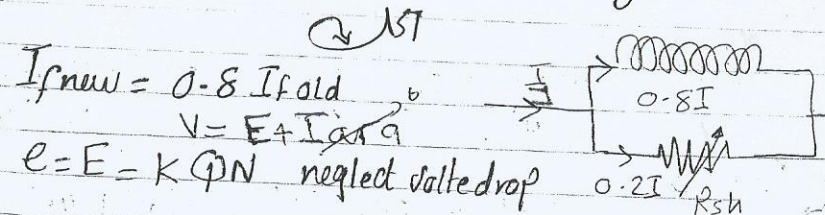 If new = 0.8 If old
V = E + Iara 0
e = E = KΦN neglect volte drop
I
0.8I
0.2I
Rsh